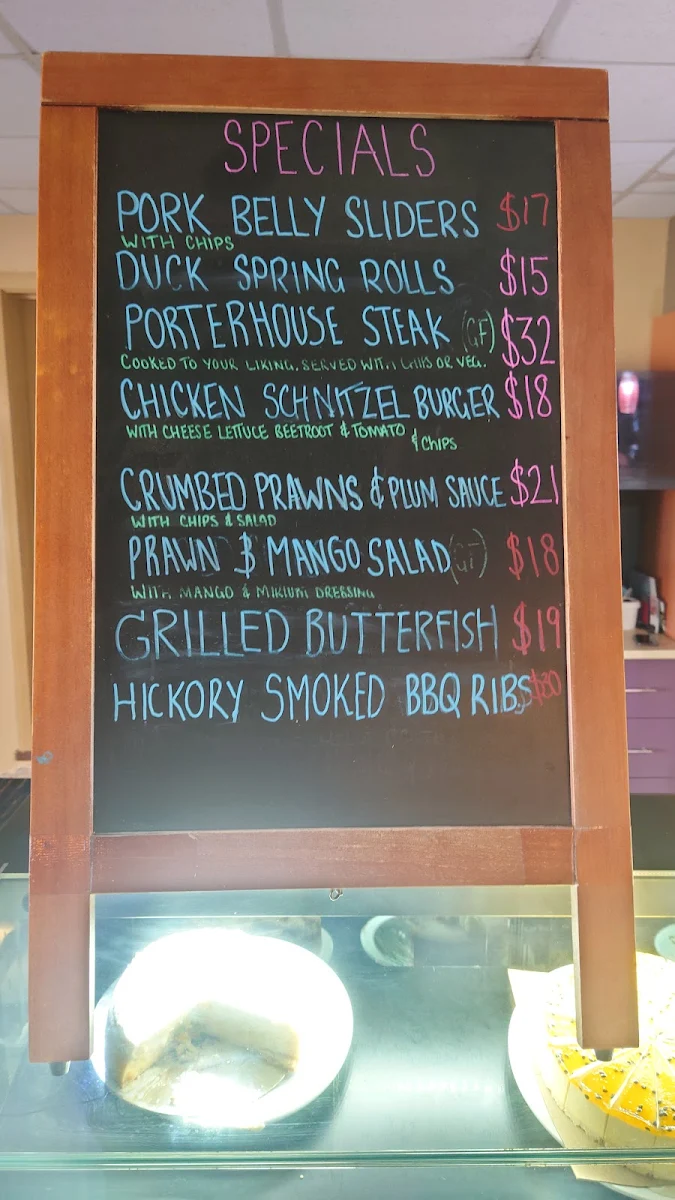 SPECIALS
PORK BELLY SLIDERS $17
WITH CHIPS
DUCK SPRING ROLLS $15
PORTERHOUSE STEAK (GF) $32
COOKED TO YOUR LIKING. SERVED WITH CHIPS OR VEG.
CHICKEN SCHNITZEL BURGER $18
WITH CHEESE LETTUCE BEETROOT & TOMATO
& CHIPS
CRUMBED PRAWNS & PLUM SAUCE $21
WITH CHIPS & SALAD
PRAWN & MANGO SALAD $18
WITH MANGO & DRESSING
GRILLED BUTTERFISH $19
HICKORY SMOKED BBQ RIBS $30